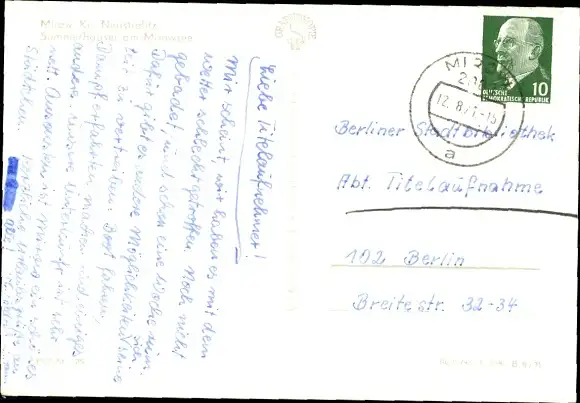 Mirow, Kr. Neustrelitz
Sommerhäuser am Mirowsee
Liebe Titelaufnehmer!
Mir scheint, wir haben es mit dem
Wetter schlecht getroffen. Noch nicht
gebadet, und schon eine Woche um.
Dafür gibt es andere Möglichkeiten, seine
Zeit zu vertreiben. Boot fahren,
Dampferfahrten machen und einiges
andere. Unsere Unterkunft ist sehr
nett. Ansonsten ist Mirow ein kleines
Städtchen. Herzliche Urlaubsgrüße an
alle!
MIROW
12.8.71-15
a
DEUTSCHE
DEMOKRATISCHE REPUBLIK
10
Berliner Stadtbibliothek
Abt. Titelaufnahme
102 Berlin
Breitestr. 32-34